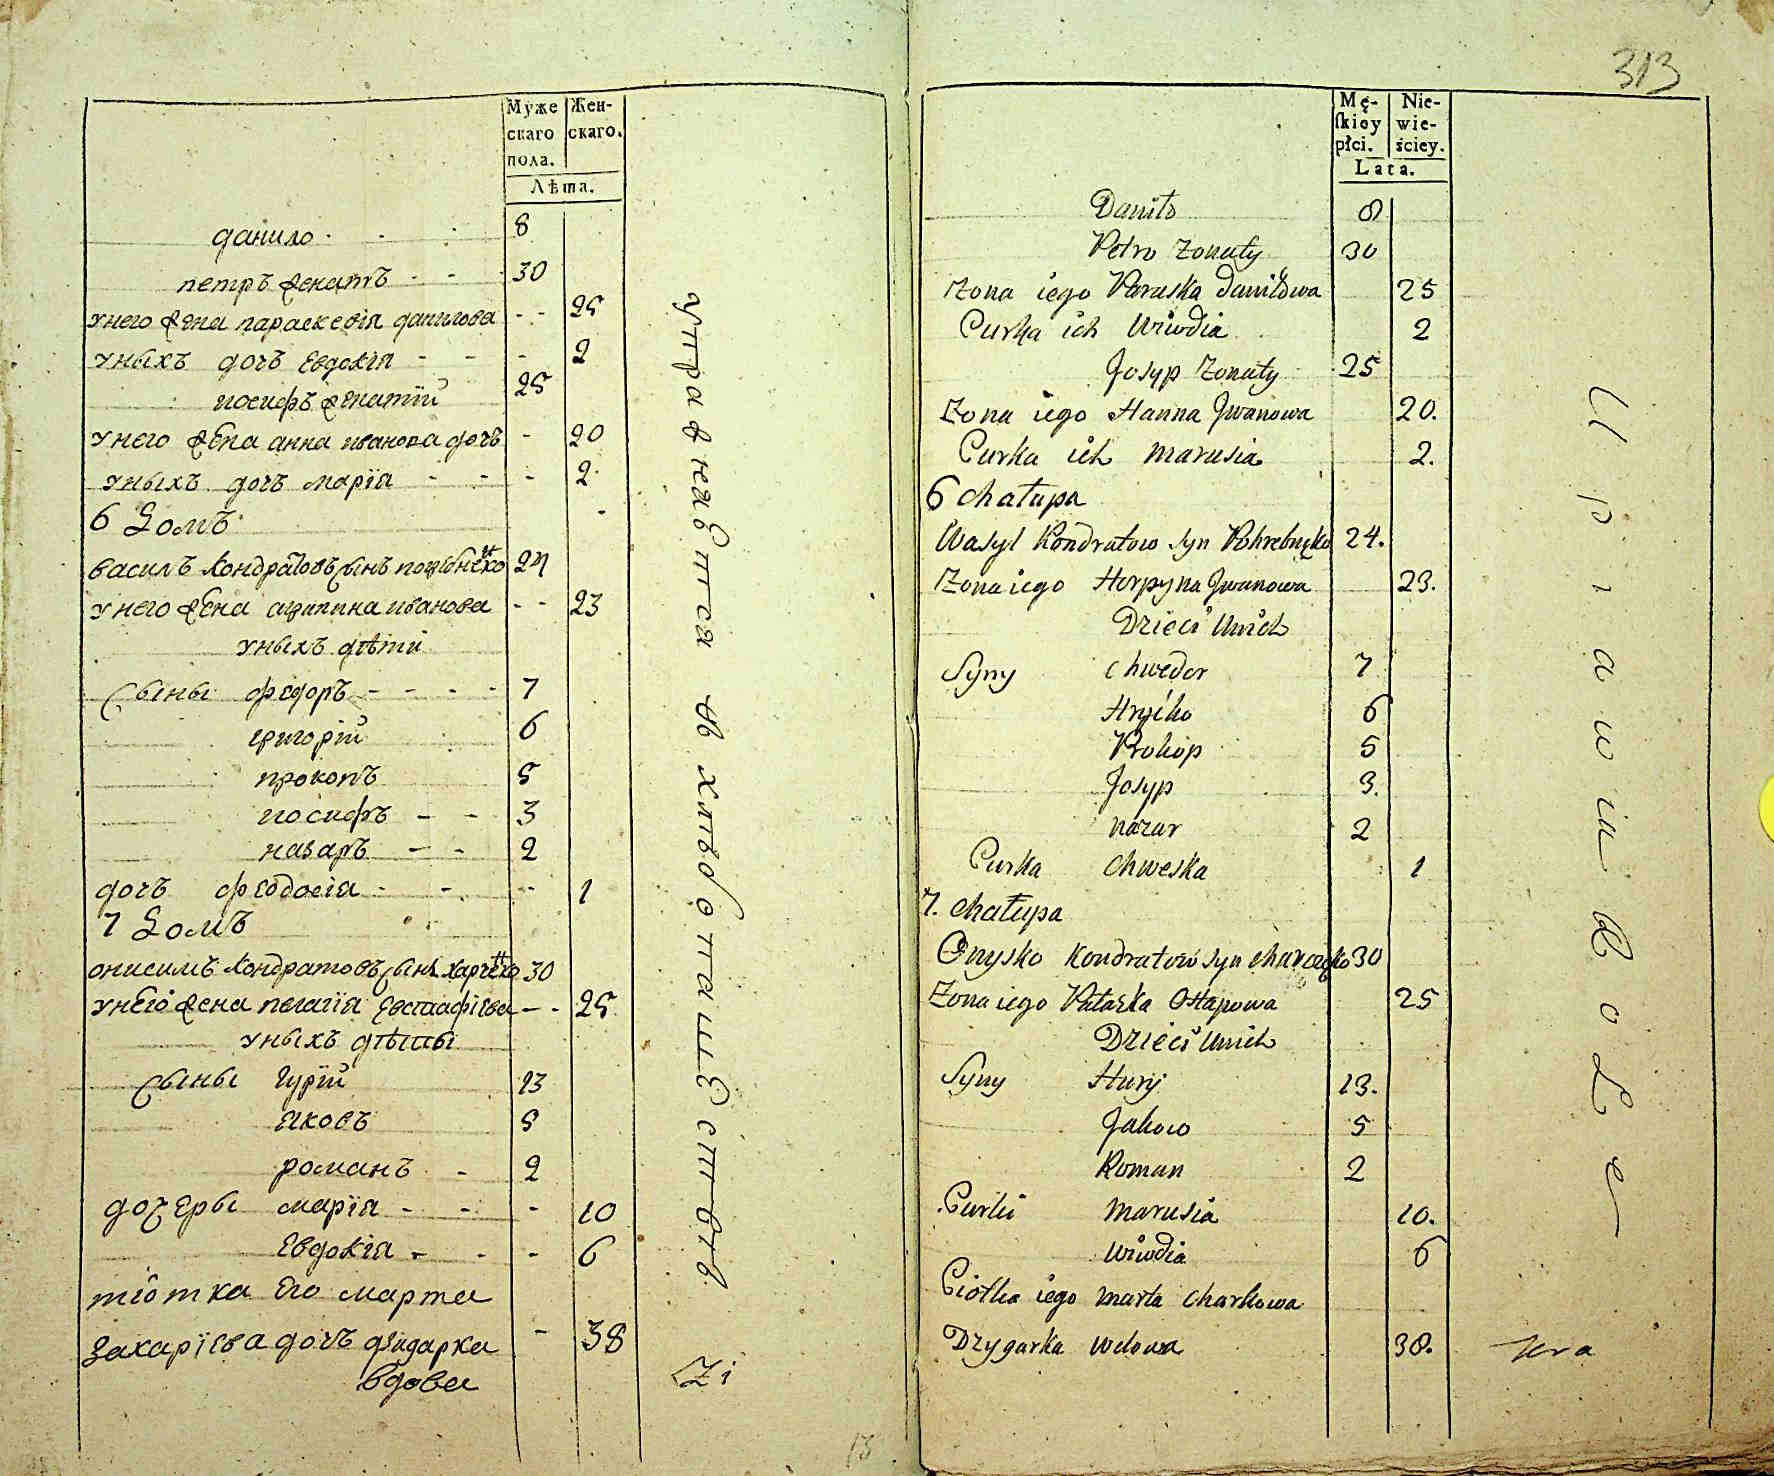 Муже
скаго
пола.
Жен-
скаго.
Лѣта.
данило 8
петръ женатъ 30
унего жена параскевія данилова 25
уныхъ дочъ Евдокія 2
иосифъ женатїй 25
унего жена анна иванова дочъ 20
уныхъ дочъ марїа 2
6 Домъ
василъ Кондратовъ сынъ 24
унего жена агрипина иванова 23
уныхъ дѣти
сыны федоръ 7
григорїй 6
прокопъ 5
иосифъ 3
назаръ 2
дочъ феодосіа 1
7 Домъ
онисимъ Кондратовъ сынъ харченко 30
унего жена пелагїя Евстафіева 25
уныхъ дѣты
сыны Гурїй 13
яковъ 5
романъ 2
дочеры марїа 10
Евдокіа 6
тіотка Его марта
захарїева дочъ дзидарка 38
вдова
упражняется в хлѣбопашествѣ
Zi
13
313
Mę-
skiey
płci.
Nie-
wie-
ściey.
Lata.
Daniło 8
Petro Zonaty 30
Zona iego Paraska Daniłowa 25
Curka ich Wiwdia 2
Josyp Zonaty 25
Zona iego Hanna Jwanowa 20.
Curka ich Marusia 2.
6 Chałupa
Wasyl Kondratow Syn Pohrebnęko 24.
Zona iego Horpyna Jwanowa 23.
Dzieci Unich
Syny Chwedor 7
Hryćko 6
Prokop 5
Josyp 3.
Nazar 2
Curka Chweska 1
7. Chałupa
Onysko Kondratow Syn Charczęko 30
Zona iego Pałazka Ostapowa 25
Dzieci Unich
Syny Hury 13.
Jakow 5
Roman 2
Curki Marusia 10.
Wiwdia 6
Ciotka iego Marta Charkowa
Dzygarka Wdowa 38.
Uprawia Role